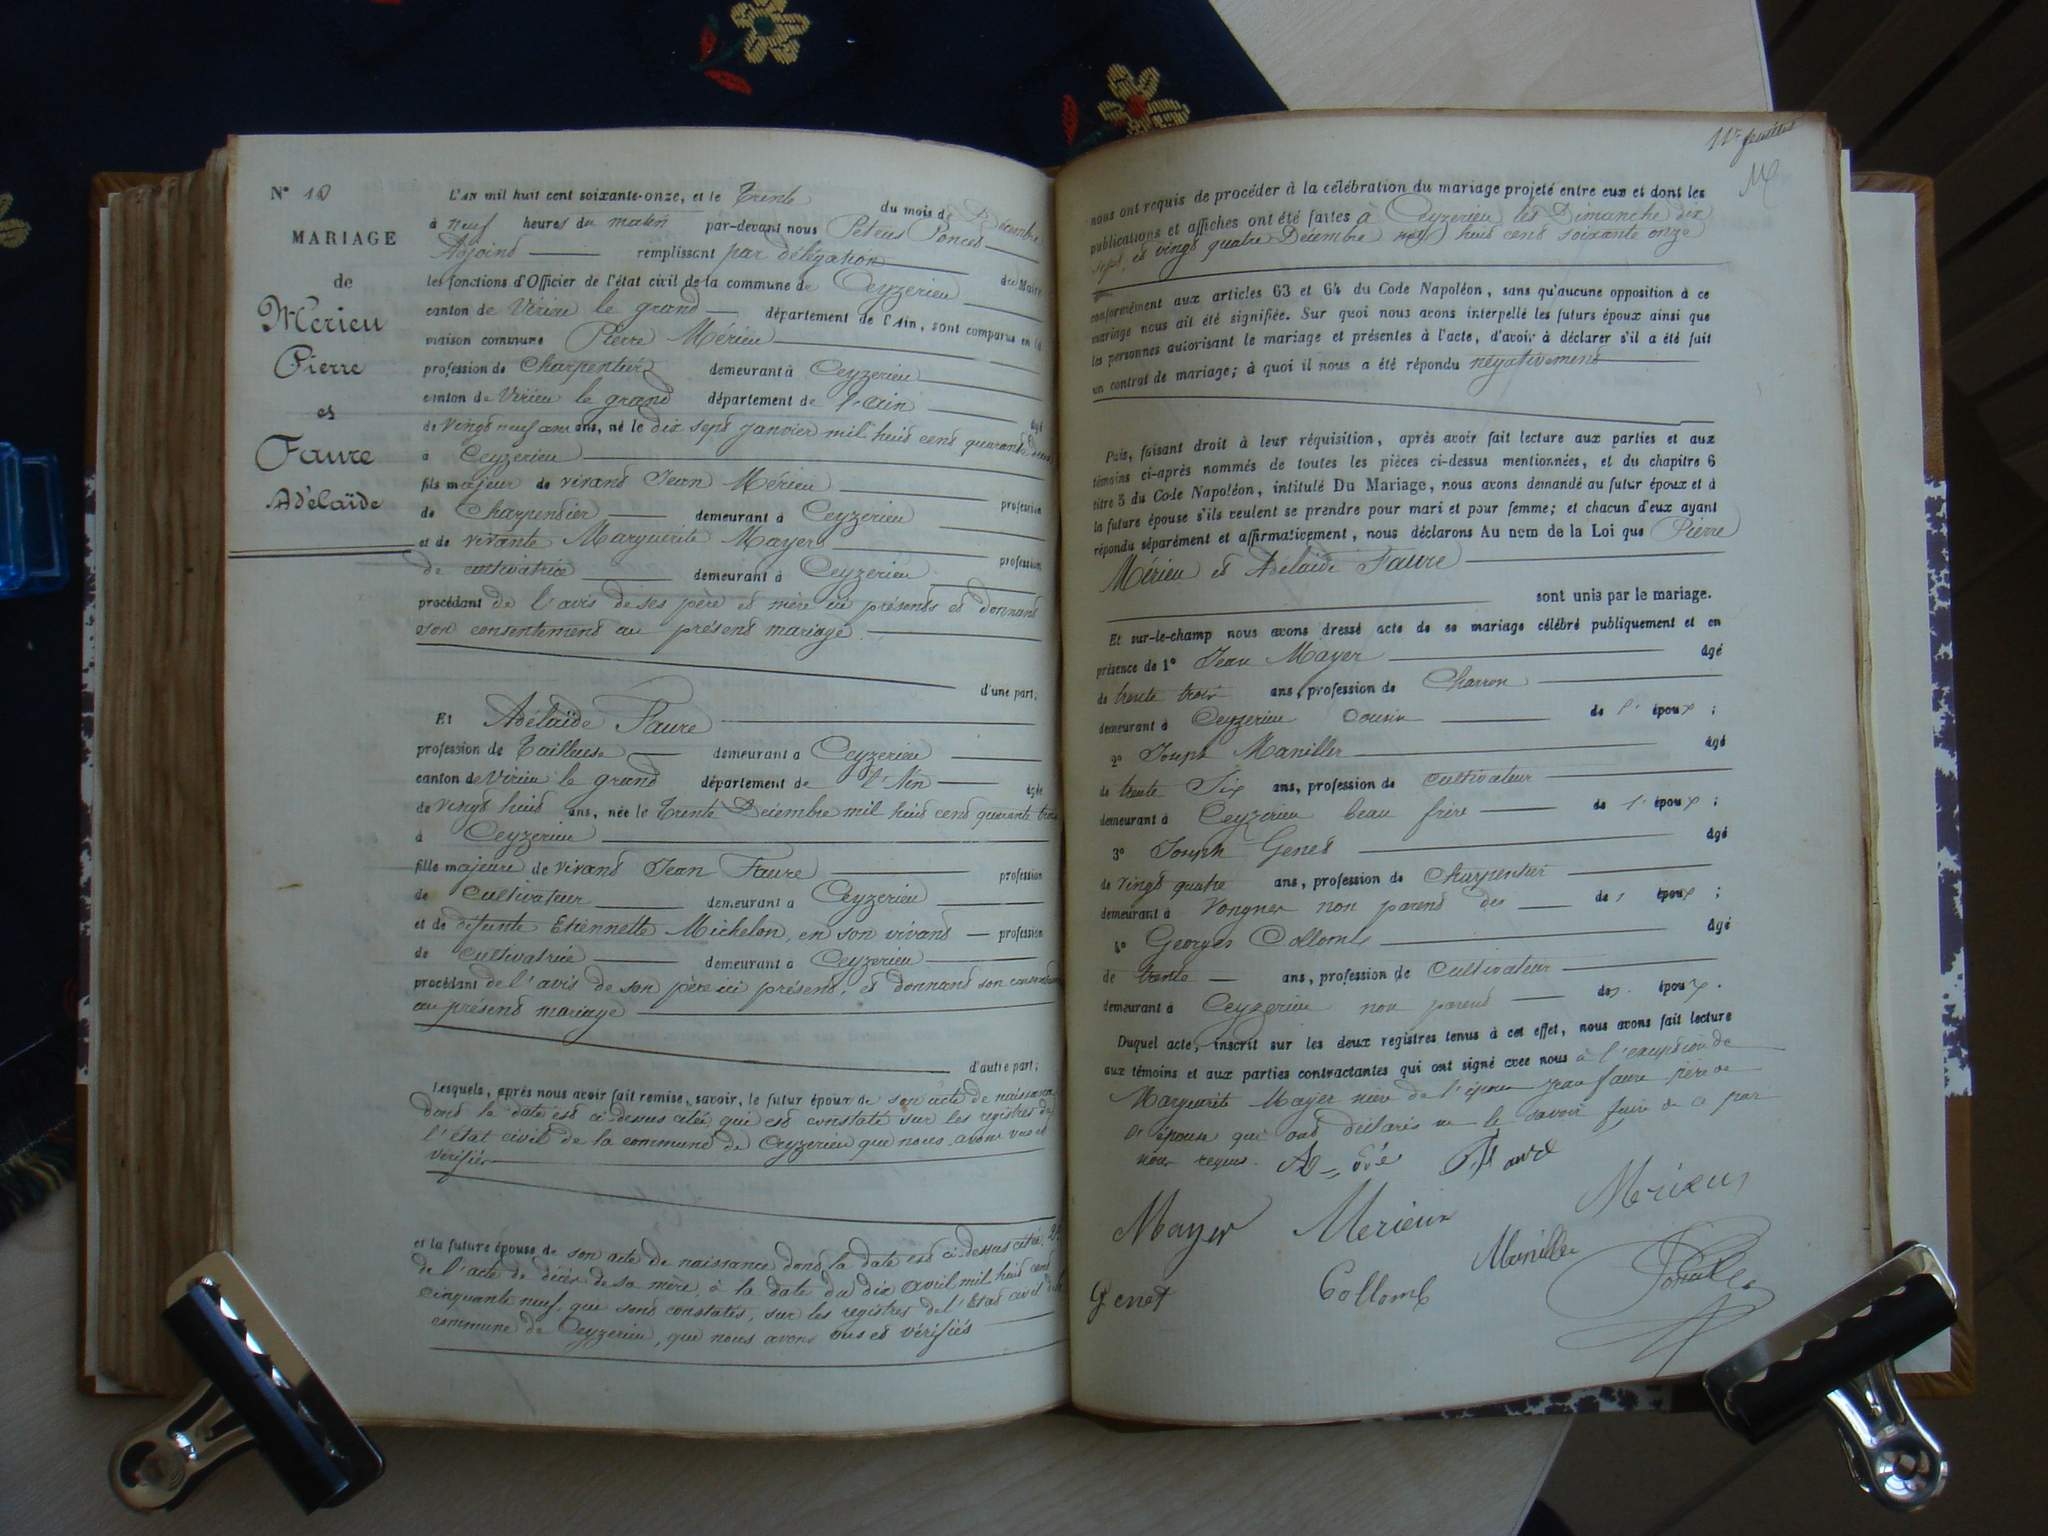 N° 10
MARIAGE
de
Merieu
Pierre
et
Faure
Adélaïde
L'AN mil huit cent soixante-onze, et le Trente du mois de Décembre
à neuf heures du matin par-devant nous
Adjoint remplissant par délégation du Maire
les fonctions d'Officier de l'état civil de la commune de Ceyzerieu
canton de Virieu le grand département de l'Ain, sont comparus en la
maison commune Pierre Mérieu
profession de Charpentier demeurant à Ceyzerieu
canton de Virieu le grand département de l'Ain
âgé
de vingt neuf ans, né le dix sept janvier mil huit cent quarante deux
à Ceyzerieu
fils majeur de vivant Jean Mérieu profession
de Charpentier demeurant à Ceyzerieu
et de vivante Marguerite Mayer profession
de cultivatrice demeurant à Ceyzerieu
procédant de l'avis de ses père et mère ici présents et donnant
son consentement au présent mariage.
d'une part;
Et Adélaïde Faure
profession de Tailleuse demeurant à Ceyzerieu
canton de Virieu le grand département de l'Ain âgée
de vingt huit ans, née le Trente Décembre mil huit cent quarante trois
à Ceyzerieu
fille majeure de vivant Jean Faure profession
de Cultivateur demeurant à Ceyzerieu
et de défunte Etiennette Michelon, en son vivant profession
de cultivatrice demeurant à Ceyzerieu
procédant de l'avis de son père ici présent, et donnant son consentement
au présent mariage
d'autre part;
Lesquels, après nous avoir fait remise, savoir, le futur époux de son acte de naissance
dont la date est ci-dessus citée, qui est constaté sur les registres de
l'état civil de la commune de Ceyzerieu que nous avons vus et
vérifiés
et la future épouse de son acte de naissance dont la date est ci-dessus citée, 2°
de l'acte de décès de sa mère, à la date du dix avril mil huit cent
cinquante neuf, que sont constatés, sur les registres de l'Etat civil de la
commune de Ceyzerieu, que nous avons vus et vérifiés
nous ont requis de procéder à la célébration du mariage projeté entre eux et dont les
publications et affiches ont été faites à Ceyzerieu les Dimanche dix
sept, et vingt quatre Décembre mil huit cent soixante onze
conformément aux articles 63 et 64 du Code Napoléon, sans qu'aucune opposition à ce
mariage nous ait été signifiée. Sur quoi nous avons interpellé les futurs époux ainsi que
les personnes autorisant le mariage et présentes à l'acte, d'avoir à déclarer s'il a été fait
un contrat de mariage; à quoi il nous a été répondu négativement
Puis, faisant droit à leur réquisition, après avoir fait lecture aux parties et aux
témoins ci-après nommés de toutes les pièces ci-dessus mentionnées, et du chapitre 6
titre 5 du Code Napoléon, intitulé Du Mariage, nous avons demandé au futur époux et à
la future épouse s'ils veulent se prendre pour mari et pour femme; et chacun d'eux ayant
répondu séparément et affirmativement, nous déclarons Au nom de la Loi que Pierre
Mérieu et Adelaïde Faure
sont unis par le mariage.
Et sur-le-champ nous avons dressé acte de ce mariage célébré publiquement et en
présence de 1° Jean Mayer âgé
de trente trois ans, profession de Charron
demeurant à Ceyzerieu cousin de l'époux;
2° Joseph Maniller âgé
de trente Six ans, profession de cultivateur
demeurant à Ceyzerieu beau frère de l'époux;
3° Joseph Genet âgé
de vingt quatre ans, profession de Charpentier
demeurant à Vongnes non parent des de époux;
4° Georges Collomb âgé
de trente ans, profession de cultivateur
demeurant à Ceyzerieu non parent des époux.
Duquel acte, inscrit sur les deux registres tenus à cet effet, nous avons fait lecture
aux témoins et aux parties contractantes qui ont signé avec nous à l'exception de
Marguerite Mayer mère de l'époux Jean faure père de
l'épouse qui ont déclaré ne le savoir faire de ce par
nous requis.
Mayer Merieux Merieux
Maniller
Genet Collomb